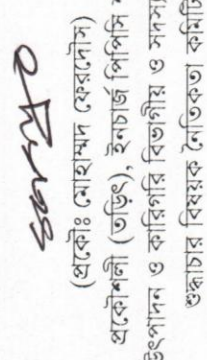 (প্রকৌঃ মোহাম্মদ ফেরদৌস)
প্রকৌশলী (তড়িৎ), ইনচার্জ পিপিসি
উৎপাদন ও কারিগরি বিভাগীয় ও সদস্য
শুদ্ধাচার বিষয়ক নৈতিকতা কমিটি